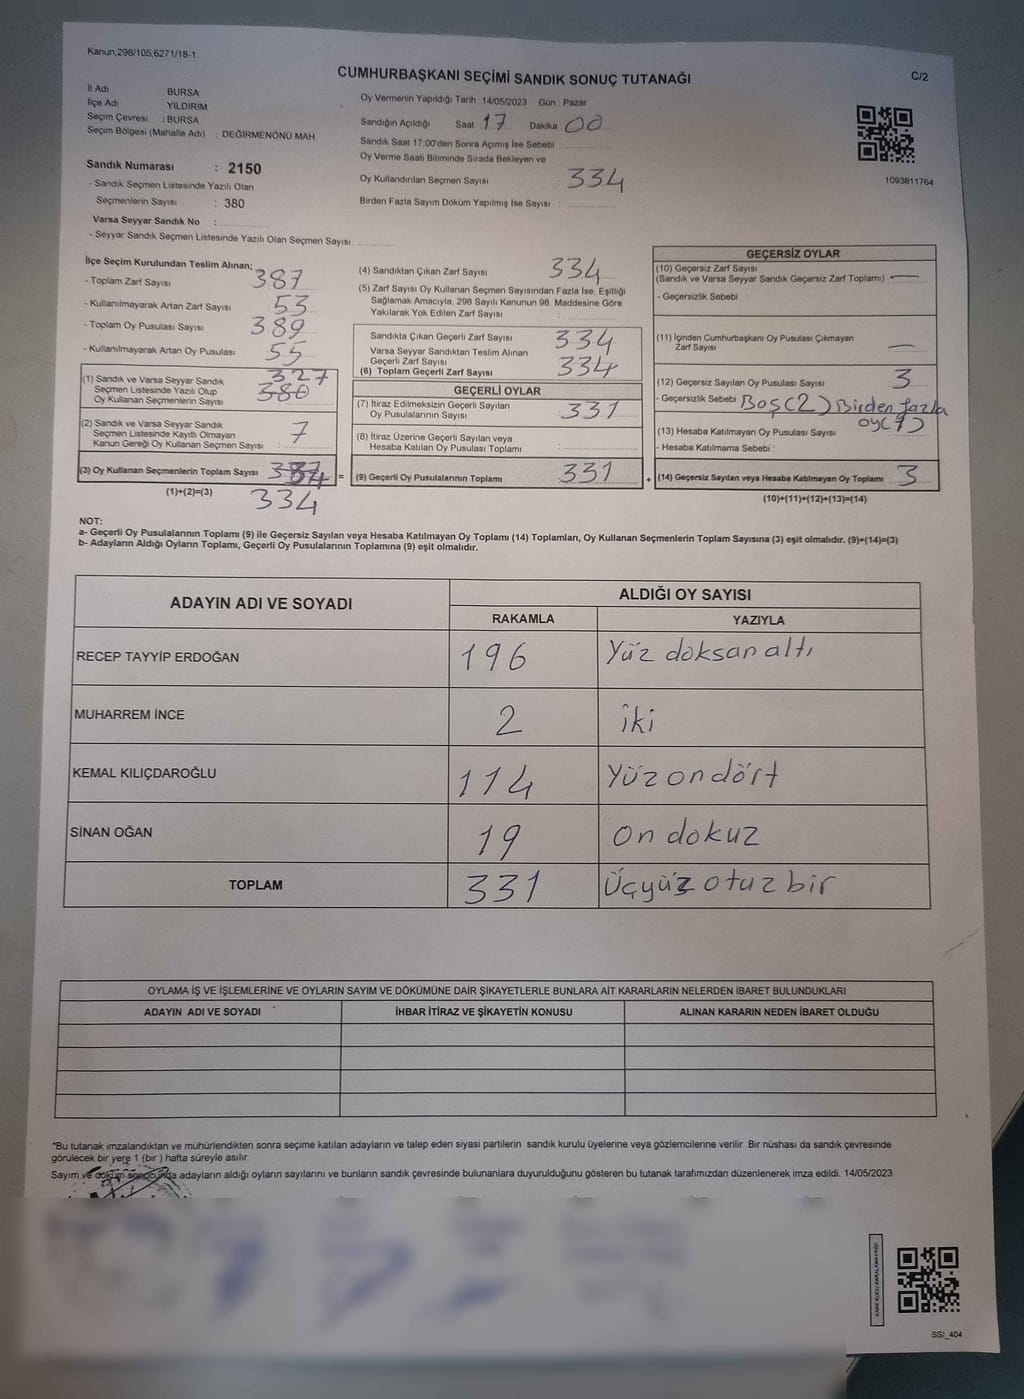 Kanun,298/105;6271/18-1
CUMHURBAŞKANI SEÇİMİ SANDIK SONUÇ TUTANAĞI
C/2
İl Adı : BURSA
İlçe Adı : YILDIRIM
Seçim Çevresi : BURSA
Seçim Bölgesi (Mahalle Adı) : DEĞİRMENÖNÜ MAH
Sandık Numarası : 2150
- Sandık Seçmen Listesinde Yazılı Olan
Seçmenlerin Sayısı : 380
Varsa Seyyar Sandık No :
- Seyyar Sandık Seçmen Listesinde Yazılı Olan Seçmen Sayısı:
Oy Vermenin Yapıldığı Tarih : 14/05/2023 Gün : Pazar
Sandığın Açıldığı Saat : 17 Dakika 00
Sandık Saat 17:00'den Sonra Açımış İse Sebebi
Oy Verme Saati Bitiminde Sırada Bekleyen ve
Oy Kullandırılan Seçmen Sayısı : 334
Birden Fazla Sayım Döküm Yapılmış İse Sayısı :
1093811764
İlçe Seçim Kurulundan Teslim Alınan;
- Toplam Zarf Sayısı : 387
- Kullanılmayarak Artan Zarf Sayısı : 53
- Toplam Oy Pusulası Sayısı : 389
- Kullanılmayarak Artan Oy Pusulası : 55
(1) Sandık ve Varsa Seyyar Sandık
Seçmen Listesinde Yazılı Olup
Oy Kullanan Seçmenlerin Sayısı
327
380
(2) Sandık ve Varsa Seyyar Sandık
Seçmen Listesinde Kayıtlı Olmayan
Kanun Gereği Oy Kullanan Seçmen Sayısı : 7
(3) Oy Kullanan Seçmenlerin Toplam Sayısı
(1)+(2)=(3)
334
(4) Sandıktan Çıkan Zarf Sayısı : 334
(5) Zarf Sayısı Oy Kullanan Seçmen Sayısından Fazla İse, Eşitliği
Sağlamak Amacıyla, 298 Sayılı Kanunun 98. Maddesine Göre
Yakılarak Yok Edilen Zarf Sayısı :
Sandıkta Çıkan Geçerli Zarf Sayısı : 334
Varsa Seyyar Sandıktan Teslim Alınan
Geçerli Zarf Sayısı
(6) Toplam Geçerli Zarf Sayısı : 334
GEÇERLİ OYLAR
(7) İtiraz Edilmeksizin Geçerli Sayılan
Oy Pusulalarının Sayısı : 331
(8) İtiraz Üzerine Geçerli Sayılan veya
Hesaba Katılan Oy Pusulası Toplamı :
= (9) Geçerli Oy Pusulalarının Toplamı : 331
GEÇERSİZ OYLAR
(10) Geçersiz Zarf Sayısı
(Sandık ve Varsa Seyyar Sandık Geçersiz Zarf Toplamı) : —
- Geçersizlik Sebebi :
(11) İçinden Cumhurbaşkanı Oy Pusulası Çıkmayan
Zarf Sayısı : —
(12) Geçersiz Sayılan Oy Pusulası Sayısı : 3
- Geçersizlik Sebebi : Boş(2) Birden fazla
oy(1)
(13) Hesaba Katılmayan Oy Pusulası Sayısı :
- Hesaba Katılmama Sebebi :
+ (14) Geçersiz Sayılan veya Hesaba Katılmayan Oy Toplamı : 3
(10)+(11)+(12)+(13)=(14)
NOT:
a- Geçerli Oy Pusulalarının Toplamı (9) ile Geçersiz Sayılan veya Hesaba Katılmayan Oy Toplamı (14) Toplamları, Oy Kullanan Seçmenlerin Toplam Sayısına (3) eşit olmalıdır. (9)+(14)=(3)
b- Adayların Aldığı Oyların Toplamı, Geçerli Oy Pusulalarının Toplamına (9) eşit olmalıdır.
ADAYIN ADI VE SOYADI
ALDIĞI OY SAYISI
RAKAMLA YAZIYLA
RECEP TAYYİP ERDOĞAN 196 Yüz doksan altı
MUHARREM İNCE 2 iki
KEMAL KILIÇDAROĞLU 114 Yüz on dört
SİNAN OĞAN 19 On dokuz
TOPLAM 331 Üçyüz otuz bir
OYLAMA İŞ VE İŞLEMLERİNE VE OYLARIN SAYIM VE DÖKÜMÜNE DAİR ŞİKAYETLERLE BUNLARA AİT KARARLARIN NELERDEN İBARET BULUNDUKLARI
ADAYIN ADI VE SOYADI İHBAR İTİRAZ VE ŞİKAYETİN KONUSU ALINAN KARARIN NEDEN İBARET OLDUĞU
*Bu tutanak imzalandıktan ve mühürlendikten sonra seçime katılan adayların ve talep eden siyasi partilerin sandık kurulu üyelerine veya gözlemcilerine verilir. Bir nüshası da sandık çevresinde
görülecek bir yere 1 (bir ) hafta süreyle asılır.
Sayım ve döküm sonucunda adayların aldığı oyların sayılarını ve bunların sandık çevresinde bulunanlara duyurulduğunu gösteren bu tutanak tarafımızdan düzenlenerek imza edildi. 14/05/2023
KARE KODU KARALAMAYINIZ!
SSI_404